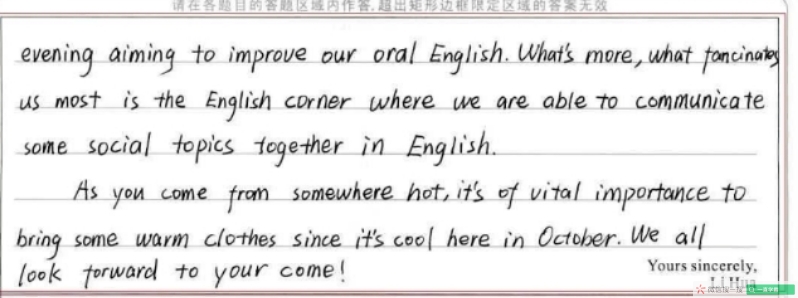 请在各题目的答题区域内作答,超出矩形边框限定区域的答案无效
evening aiming to improve our oral English. What's more, what fancinates
us most is the English corner where we are able to communicate
some social topics together in English.
As you come from somewhere hot, it's of vital importance to
bring some warm clothes since it's cool here in October. We all
look forward to your come!
Yours sincerely,
Li Hua